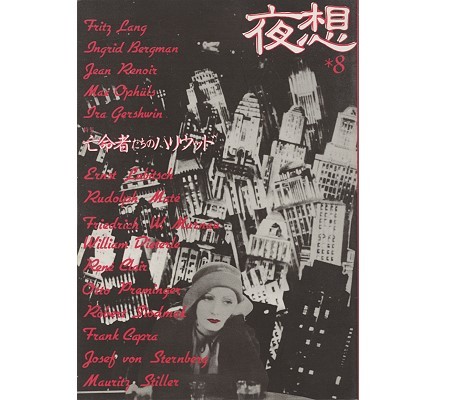 夜想
*8
Fritz Lang
Ingrid Bergman
Jean Renoir
Max Ophüls
Ira Gershwin
亡命者たちのハリウッド
Ernst Lubitsch
Rudolph Maté
Friedrich W Murnau
William Dieterle
René Clair
Otto Preminger
Robert Siodmak
Frank Capra
Josef von Sternberg
Mauritz Stiller